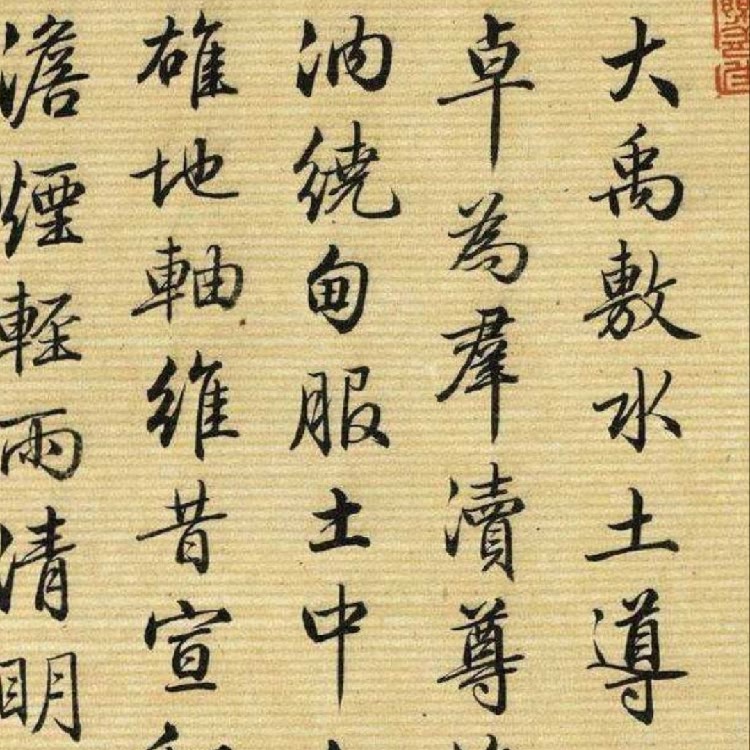 大禹敷水土導
卓為羣瀆尊
汭繞甸服土中
雄地軸維昔宣
澹煙輕雨清明